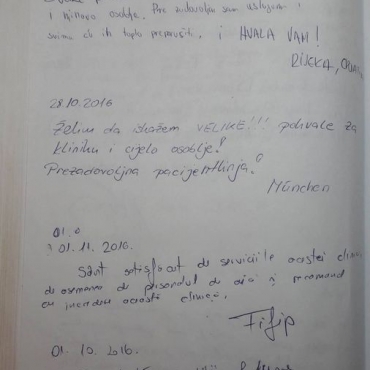 i njihovo osoblje. Pre zadovoljna sam uslugom i
svima ću ih toplo preporučiti. i HVALA VAM!
RIJEKA,
28.10.2016
Želim da iskažem VELIKE!!! pohvale za
kliniku i cijelo osoblje!
Prezadovoljna pacijentkinja!
München
01.0
01.11.2016.
Sânt satisfăcut de serviciile acestei clinici
de asemenea de personalul de aici și recomand
cu încredere această clinică.
Filip
01.10.2016.